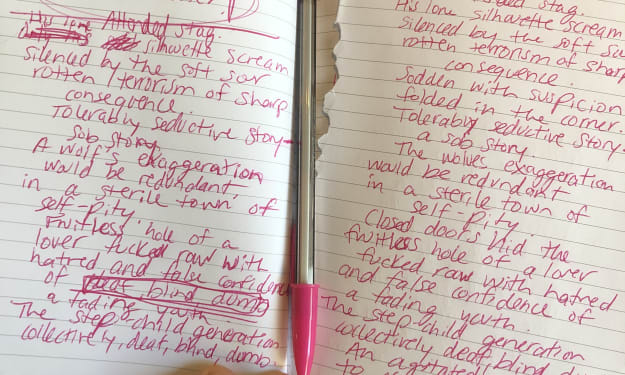 His lone Allorded stag.
silhuette scream
silenced by the soft sour
rotten terrorism of sharp
consequence.
Tolerably seductive story-
sob story.
A wolf's exaggeration
would be redundant
in a sterile town of
self-pity.
Fruitless hole of a
lover fucked raw with
hatred and false confidence
of deaf blind dumb
a fading youth.
The step-child generation
collectively, deaf, blind, dumb.
stag.
His lone silhuette scream
silenced by the soft
rotten terrorism of sharp
consequence.
Sodden with suspicion
folded in the corner.
Tolerably seductive story-
a sob story.
The wolves exaggeration
would be redundant
in a sterile town of
self-pity.
Closed doors hid the
fruitless hole of a lover
fucked raw with hatred
and false confidence of
a fading youth.
The step-child generation
collectively deaf blind
An
to